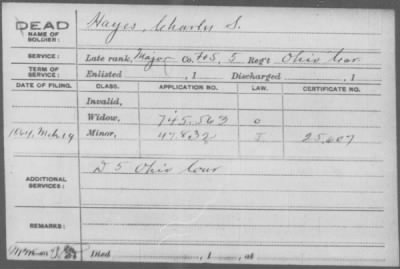 DEAD
NAME OF SOLDIER:
Hayes, Charles S.
SERVICE:
Late rank, Major Co. F&S, 5 Reg't Ohio Cav
TERM OF SERVICE:
Enlisted , 1 Discharged , 1
DATE OF FILING. CLASS. APPLICATION NO. LAW. CERTIFICATE NO.
Invalid,
Widow, 745.563 O
Mch 19 Minor, 47.832 25.607
ADDITIONAL SERVICES:
D 5 Ohio Cav
REMARKS:
Died , 1 , at